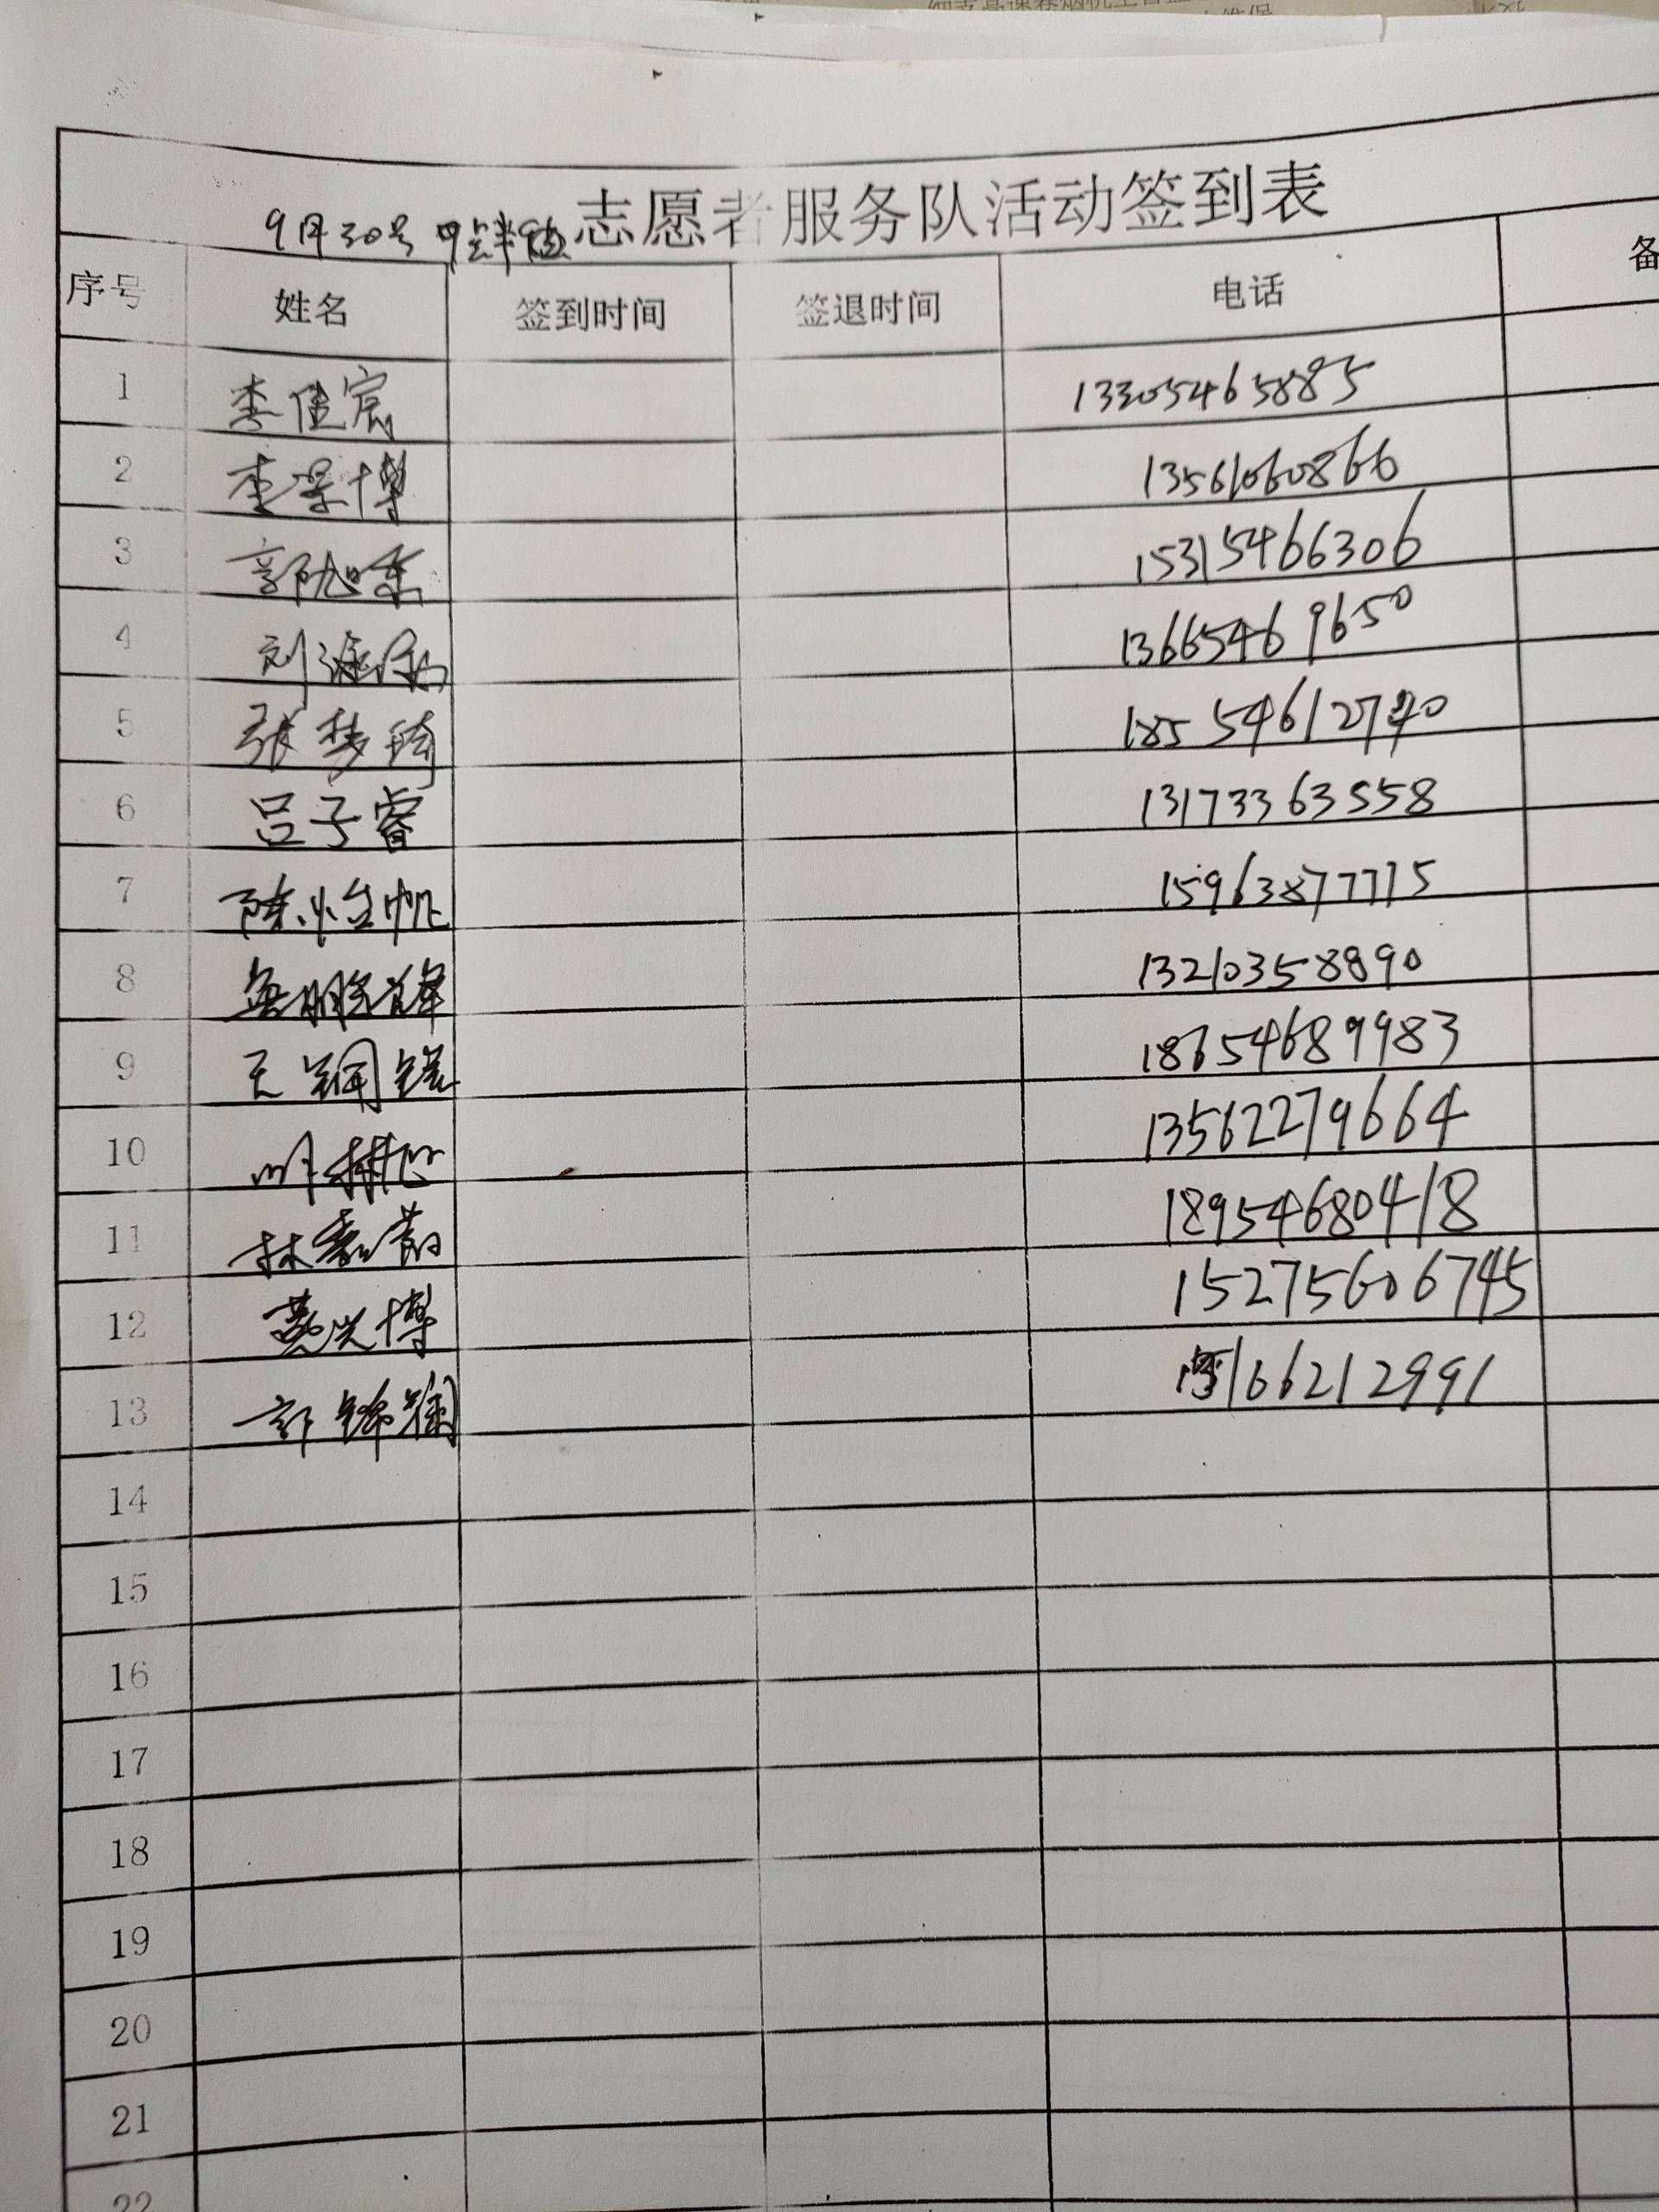 志愿者服务队活动签到表
9月30号
序号 姓名 签到时间 签退时间 电话 备
1 李佳宸 13305465885
2 李景博 13561060866
3 郭 15315466306
4 刘 13665469650
5 张梦琦 18554612740
6 吕子睿 13173363558
7 陈怡帆 15963877715
8 13210358890
9 王 18654689983
10 13562279664
11 林 18954680418
12 燕兴博 15275606745
13 66212991
14
15
16
17
18
19
20
21
22